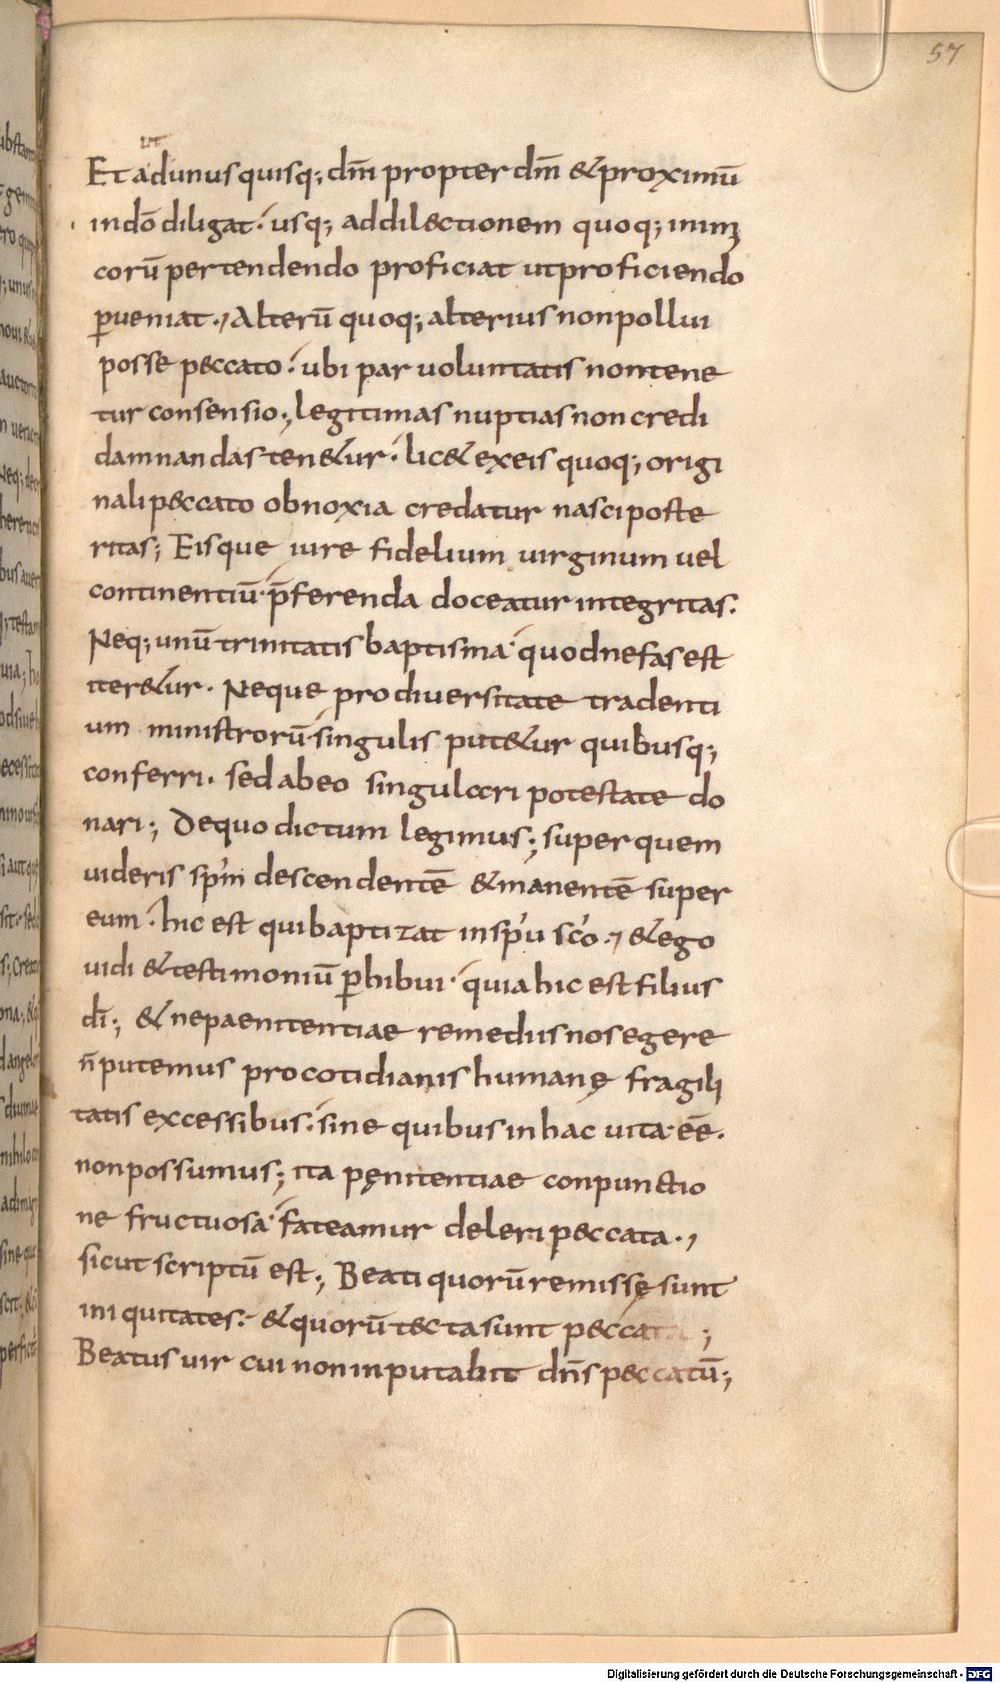 57
ut
Et adunusquisq; dm̄ propter dm̄ & proximū
indō diligat. usq; addil&ctionem quoq; inimi
corū pertendendo proficiat utproficiendo
ꝑueniat., Alterū quoq; alterius nonpollui
posse p&ccato. ubi par uoluntatis nontene
tur consensio; legitimas nuptias noncredi
damnandas ten&ur. lic& exeis quoq; origi
nali p&ccato obnoxia credatur nasci poste
ritas; Eisque iure fidelium uirginum uel
continentiū p̄ferenda doceatur integritas.
Neq; unū trinitatis baptisma quod nefas est
iter&ur. Neque pro diuersitate tradenti
um ministrorū singulis put&ur quibusq;
conferri. sed abeo singulari potestate do
nari; Dequo dictum legimus; super quem
uideris sp̄m descendentē & manentē super
eum. hic est qui baptizat in sp̄u sc̄o., & ego
uidi & testimoniū ꝑhibui quia hic est filius
dī; & nepaenitentiae remediis nos egere
n̄ putemus procotidianis humanę fragili
tatis excessibus. sine quibus in hac uita ēē.
non possumus; ita pęnitentiae conpunctio
ne fructuosa fateamur deleri p&ccata.,
sicut scriptū est; Beati quorū remissę sunt
iniquitates. & quorū t&cta sunt p&ccata;
Beatus uir cui non inputabit dn̄s p&ccatū;
Digitalisierung gefördert durch die Deutsche Forschungsgemeinschaft - DFG